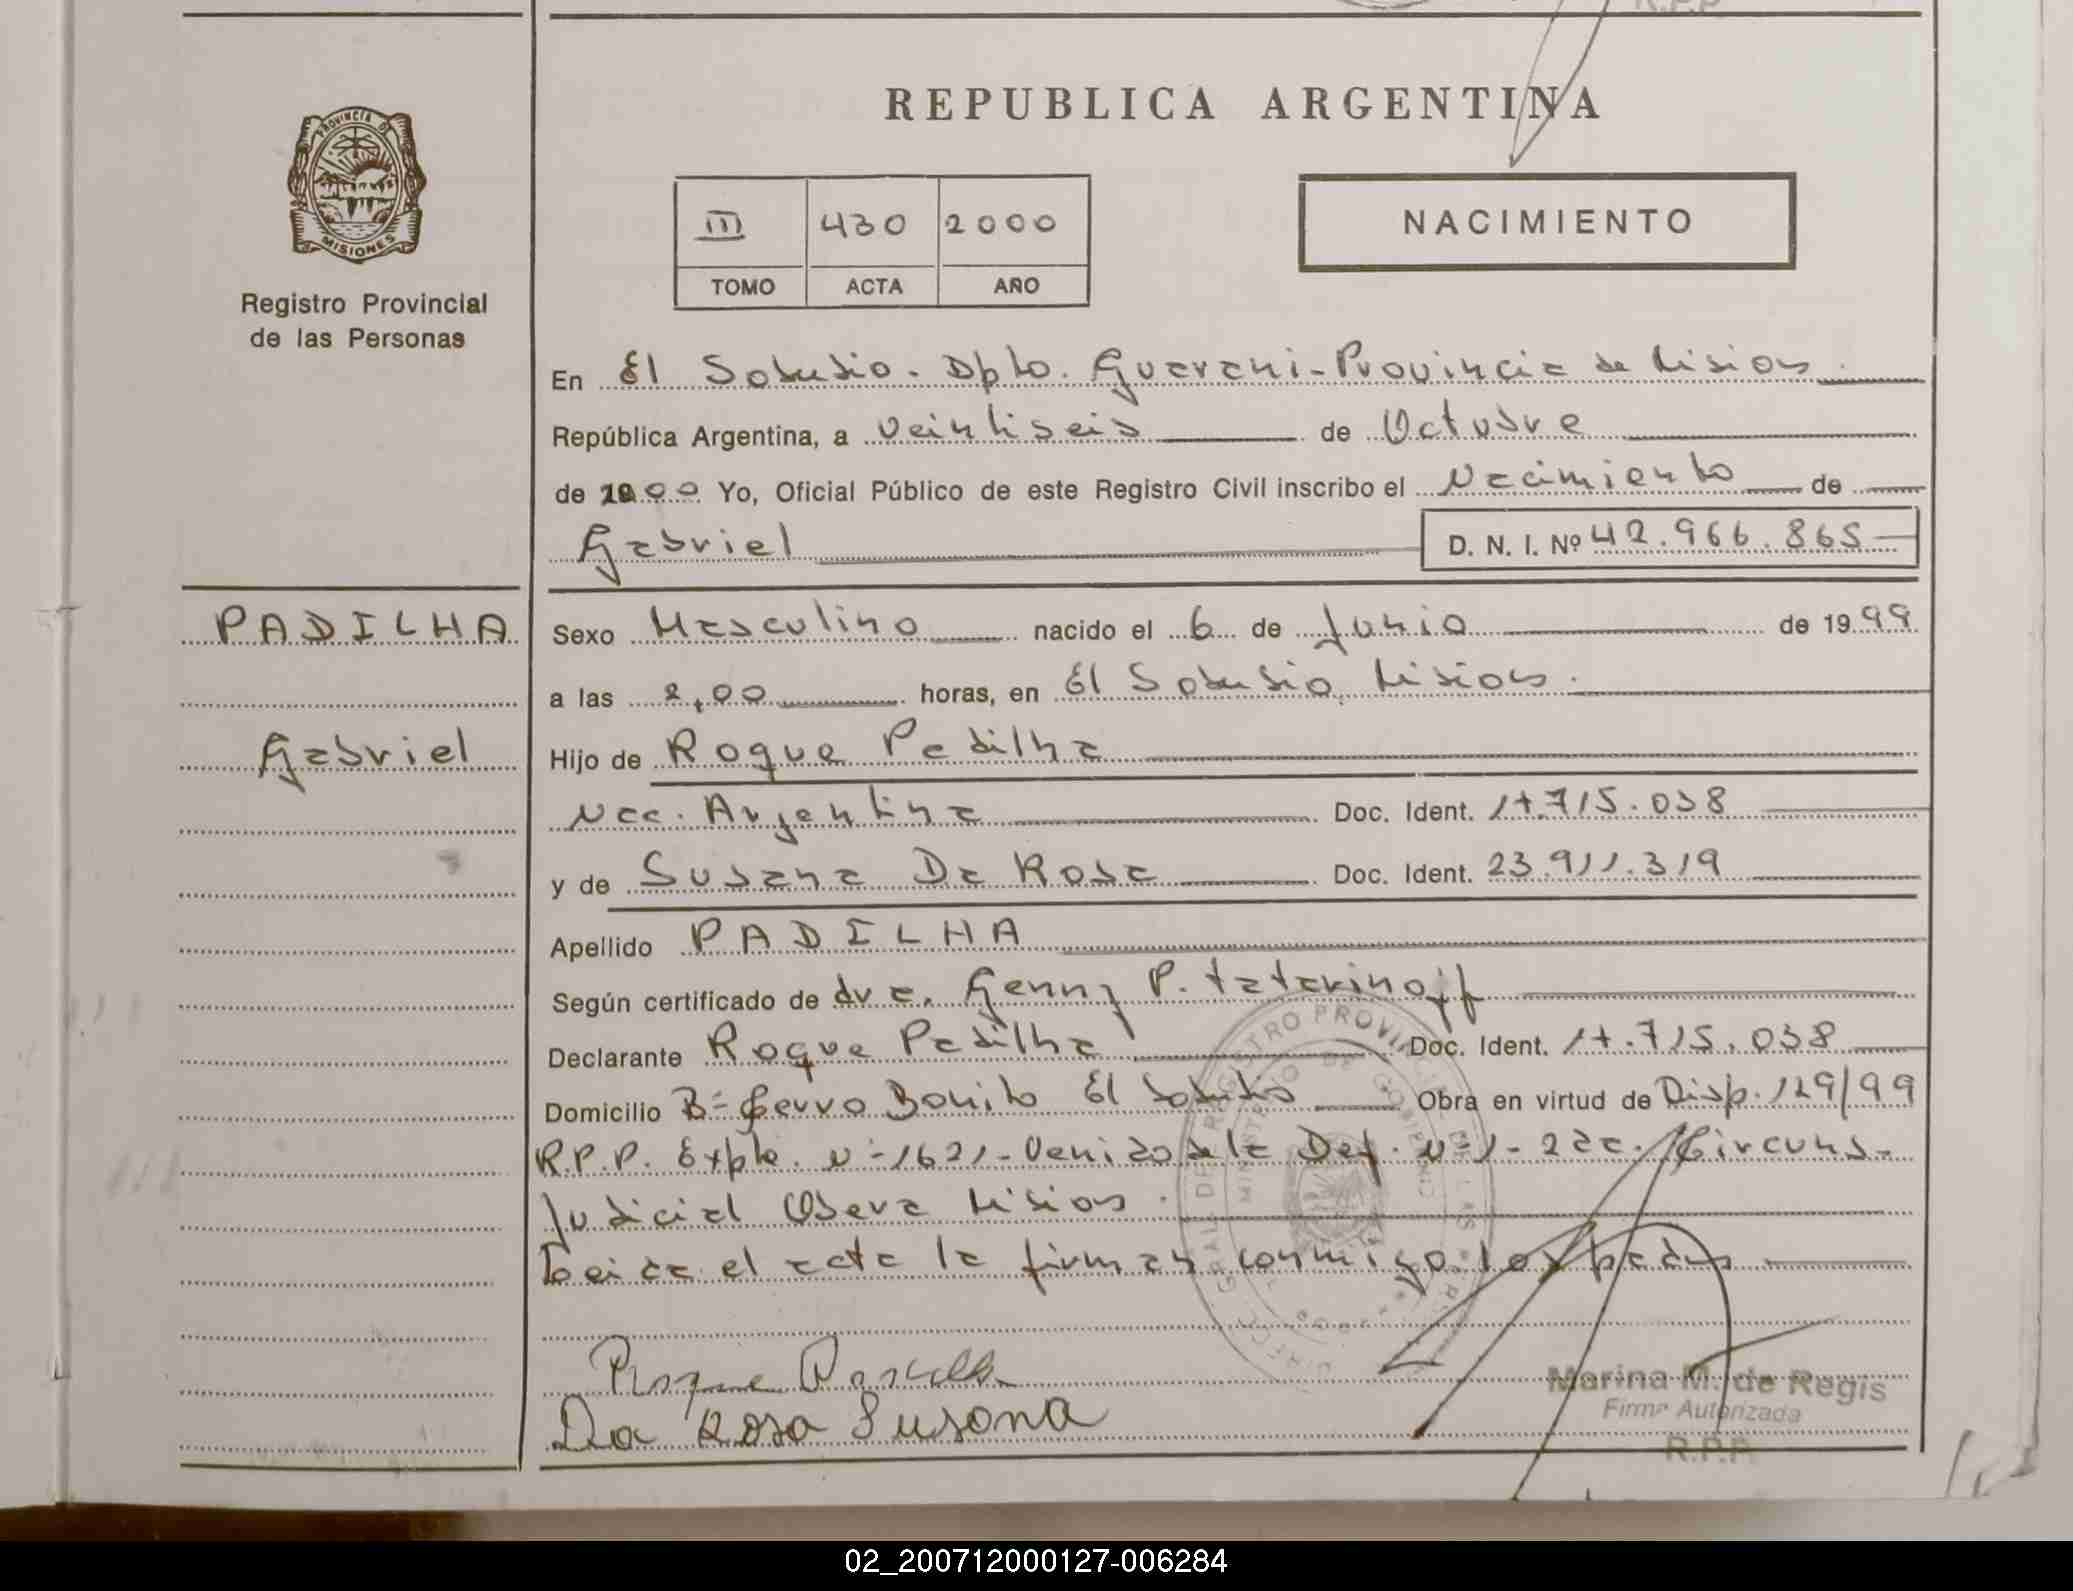 REPUBLICA ARGENTINA
PROVINCIA DE
MISIONES
Registro Provincial
de las Personas
III 430 2000
TOMO ACTA AÑO
NACIMIENTO
En El Soberbio - Dpto. Guarani - Provincia de Misiones.
República Argentina, a veintiseis de Octubre
de 2000 Yo, Oficial Público de este Registro Civil inscribo el Nacimiento de
Gabriel D. N. I. Nº 42.966.865
PADILHA
Gabriel
Sexo Masculino nacido el 6 de Junio de 1999
a las 2,00 horas, en El Soberbio, Misiones.
Hijo de Roque Padilha
Nac. Argentina Doc. Ident. 17.715.038
y de Susana Da Rosa Doc. Ident. 23.911.319
Apellido PADILHA
Según certificado de dra. Genny P. tatarinoff
Declarante Roque Padilha Doc. Ident. 17.715.038
Domicilio Bº Cerro Bonito El Soberbio Obra en virtud de Disp. 129/99
R.P.P. Expte. Nº 1621 - Venido de la Def. Nº 1 - 2da. Circuns.
Judicial Obera Misiones.
Leida el acta la firman conmigo los padres
Roque Padilha
Da Rosa Susana
Marina M. de Regis
Firma Autorizada
R.P.P.
02_200712000127-006284